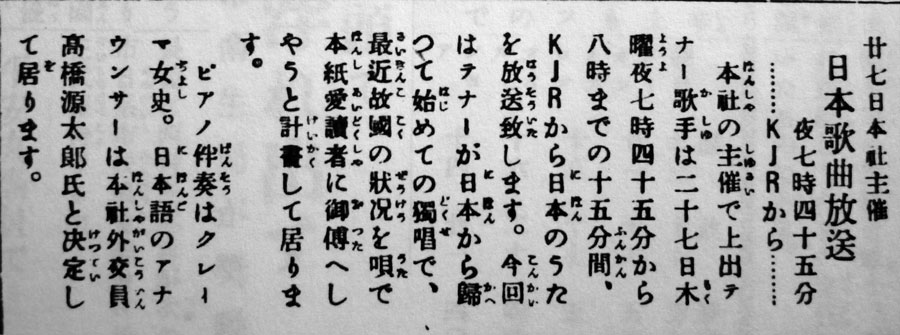 廿七日本社主催
日本歌曲放送
夜七時四十五分
………KJRから………
本社の主催で上出テ
ナー歌手は二十七日木
曜夜七時四十五分から
八時までの十五分間、
KJRから日本のうた
を放送致します。今回
はテナーが日本から歸
つて始めての獨唱で、
最近故國の狀況を唄で
本紙愛讀者に御傳へし
やうと計畫して居りま
す。
ピアノ伴奏はクレー
マ女史。日本語のアナ
ウンサーは本社外交員
高橋源太郎氏と決定し
て居ります。